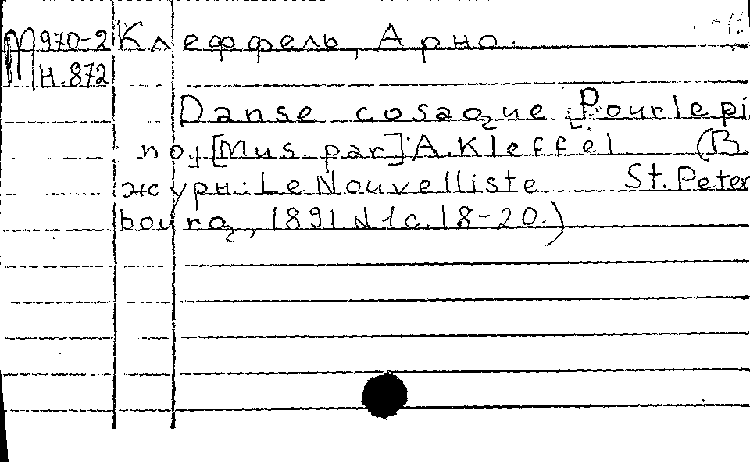 М 970-2 Клеффель, Арно.
Н.872
Danse cosaque [Pour le pi
no] [Mus par] A. Kleffel (В
журн: Le Nouvelliste St. Peter
bourg, 1891 N 1 c. 18-20.)